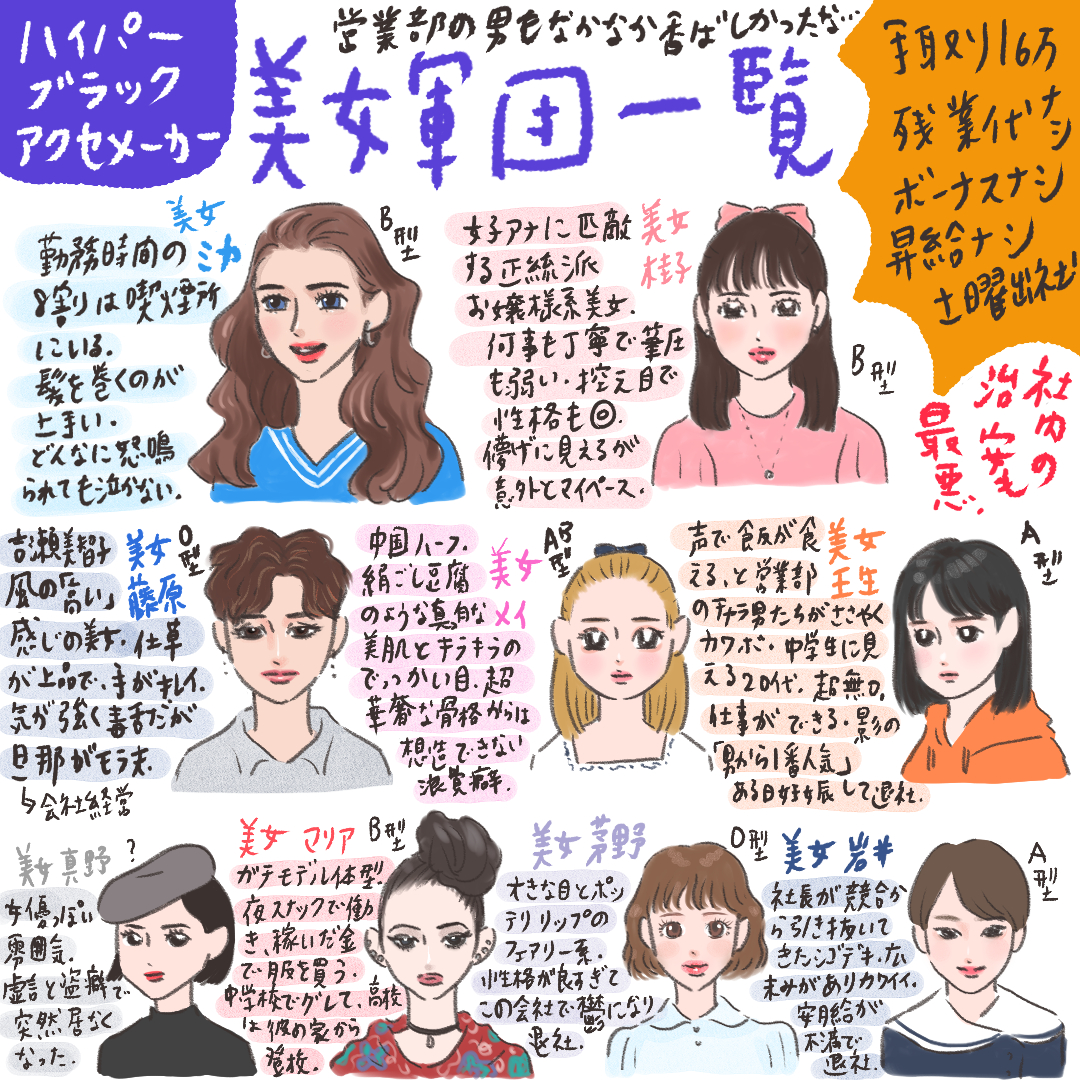 ハイパー
ブラック
アクセメーカー
営業部の男もなかなか香ばしかったな…
美女軍団一覧
手取り16万
残業代ナシ
ボーナスナシ
昇給ナシ
土曜出社
社内の
治安も
最悪。
美女
ミカ
B型
勤務時間の
8割りは喫煙所
にいる。
髪を巻くのが
上手い。
どんなに怒鳴
られても泣かない。
美女
桂子
B型
女子アナに匹敵
する正統派
お嬢様系美女。
何事も丁寧で筆圧
も弱い。控え目で
性格も◎。
儚げに見えるが
意外とマイペース。
美女
藤原
O型
吉瀬美智子
風の「高い」
感じの美女。仕草
が上品で、手がキレイ。
気が強く毒舌だが
旦那がモラ夫。
↳会社経営
美女
メイ
AB型
中国ハーフ。
絹ごし豆腐
のような真白な
美肌とキラキラの
でっかい目。超
華奢な骨格からは
想像できない
浪費癖。
美女
壬生
A型
声で食飯が食
える、と営業部
のチャラ男たちがささやく
カワボ。中学生に見
える20代。超無口。
仕事ができる。影の
「男から1番人気」
ある日妊娠して退社。
美女 真野
?
女優っぽい
雰囲気。
虚言と盗癖で
突然居なく
なった。
美女 マリア
B型
ガチモデル体型
夜スナックで働
き、稼いだ金
で服を買う。
中学校でグレて、高校
は彼の家から
登校。
美女 茅野
O型
大きな目とポッ
テリリップの
フェアリー系。
性格が良すぎて
この会社で鬱になり
退社。
美女 岩井
A型
社長が競合か
ら引き抜いて
きたシゴデキ。広
末みがありカワイイ。
安月給が
不満で
退社。